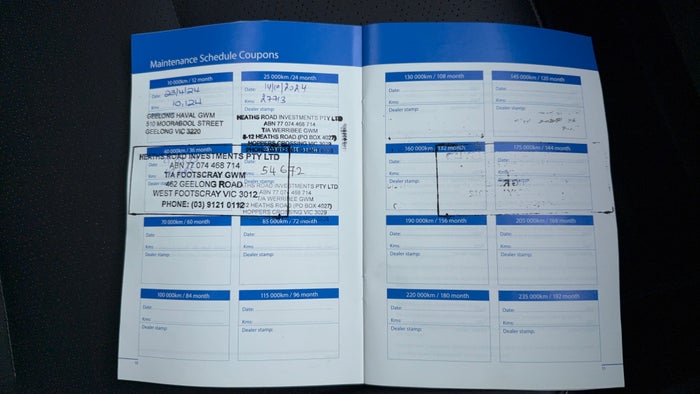 Maintenance Schedule Coupons
10 000km / 12 month
Date: 23/4/24
Kms: 10,124
GEELONG HAVAL GWM
510 MOORABOOL STREET
GEELONG VIC 3220
25 000km /24 month
Date:
Kms: 27713
Dealer stamp:
HEATHS ROAD INVESTMENTS PTY LTD
ABN 77 074 468 714
T/A WERRIBEE GWM
8-12 HEATHS ROAD (PO BOX 4027)
HOPPERS CROSSING VIC 3029
40 000km / 36 month
HEATHS ROAD INVESTMENTS PTY LTD
ABN 77 074 468 714
T/A FOOTSCRAY GWM
462 GEELONG ROAD
WEST FOOTSCRAY VIC 3012
PHONE: (03) 9121 0112
54672
HEATHS ROAD INVESTMENTS PTY LTD
ABN 77 074 468 714
T/A WERRIBEE GWM
HEATHS ROAD (PO BOX 4027)
HOPPERS CROSSING VIC 3029
70 000km / 60 month
Date:
Kms:
Dealer stamp:
85 000km / 72 month
Date:
Kms:
Dealer stamp:
100 000km / 84 month
Date:
Kms:
Dealer stamp:
115 000km / 96 month
Date:
Kms:
Dealer stamp:
130 000km / 108 month
Date:
Kms:
Dealer stamp:
145 000km / 120 month
Date:
Kms:
Dealer stamp:
160 000km / 132 month
Date:
Kms:
Dealer stamp:
175 000km / 144 month
190 000km / 156 month
Date:
Kms:
Dealer stamp:
205 000km / 168 month
Date:
Kms:
Dealer stamp:
220 000km / 180 month
Date:
Kms:
Dealer stamp:
235 000km / 192 month
Date:
Kms:
Dealer stamp: